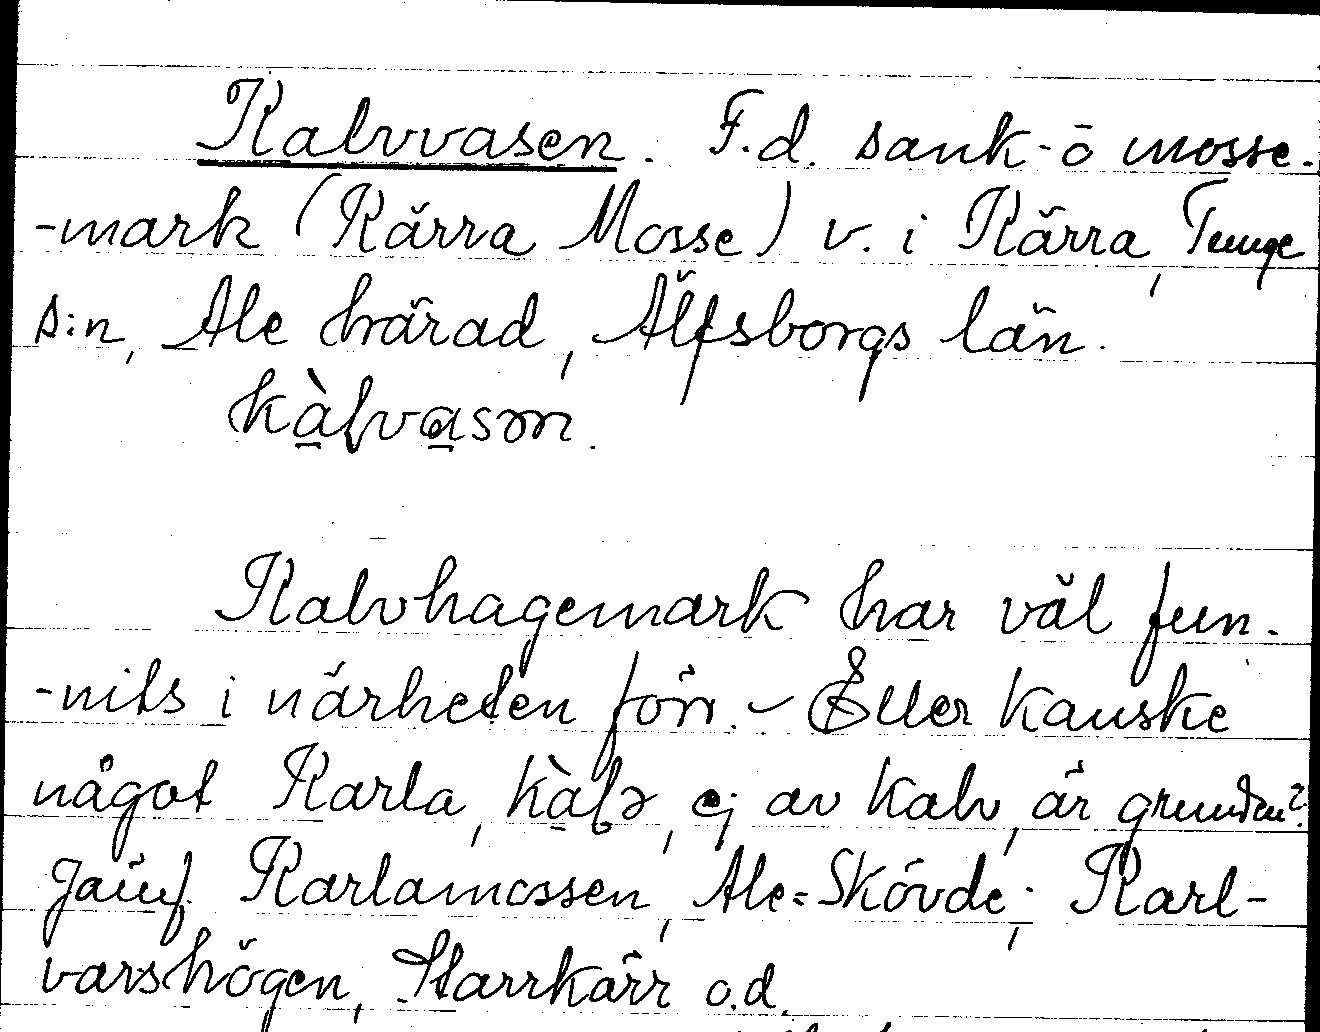 Kalvvasen. F.d. sank- o mosse-
-mark (Kärra Mosse) v. i Kärra, Tunge
s:n, Ale härad, Älfsborgs län.
kàlvasən.
Kalvhagemark har väl fun-
-nits i närheten förr. – Eller kanske
något Karla, kàlə, ej av kalv, är grunden?
Jämf. Karlamossen, Ale-Skövde; Karl-
varshögen, Starrkärr o.d.